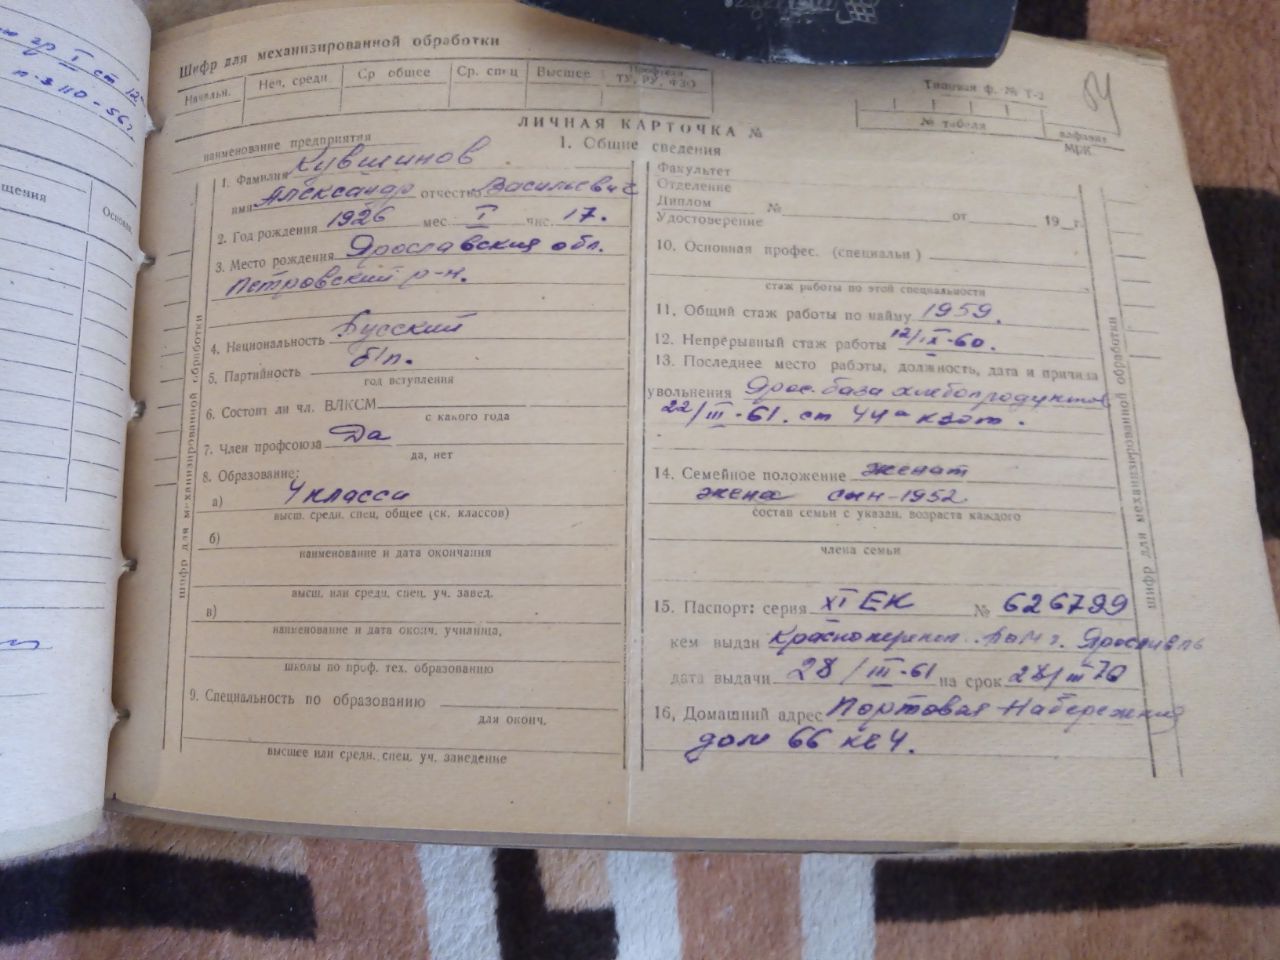 Шифр для механизированной обработки
Начальн.
Неп, средн
Ср общее
Ср. спец
Высшее
ТУ, РУ, ФЗО
Типовая ф. № Т-2
№ табеля
алфавит
МРК
ЛИЧНАЯ КАРТОЧКА №
наименование предприятия
1. Общие сведения
1. Фамилия Кувшинов
имя Александр отчество Васильевич
2. Год рождения 1926 мес I чис. 17.
3. Место рождения Ярославская обл.
Петровский р-н.
4. Национальность Русский
5. Партийность б/п.
год вступления
6. Состоит ли чл. ВЛКСМ
с какого года
7. Член профсоюза Да
да, нет
8. Образование:
а) 4 класса
высш. средн. спец, общее (ск. классов)
б)
наименование и дата окончания
высш. или средн. спец. уч. завед.
в)
наименование и дата оконч. училища,
школы по проф. тех. образованию
9. Специальность по образованию
для оконч.
высшее или средн. спец. уч. заведение
Факультет
Отделение
Диплом
Удостоверение № от 19 г.
10. Основная профес. (специальн)
стаж работы по этой специальности
11. Общий стаж работы по найму 1959.
12. Непрерывный стаж работы 12/IX-60.
13. Последнее место работы, должность, дата и причина
увольнения Яросл. база хлебопродуктов
22/III-61. ст 44а кзот.
14. Семейное положение женат
жена сын-1952
состав семьи с указан. возраста каждого
члена семьи
15. Паспорт: серия XI ЕК № 626799
кем выдан г. Ярославль
дата выдачи 28/III-61 на срок 28/III 70
16, Домашний адрес Портовая Набережная
дом 66 кв 4.
шифр для механизированной обработки
шифр для механизированной обработки